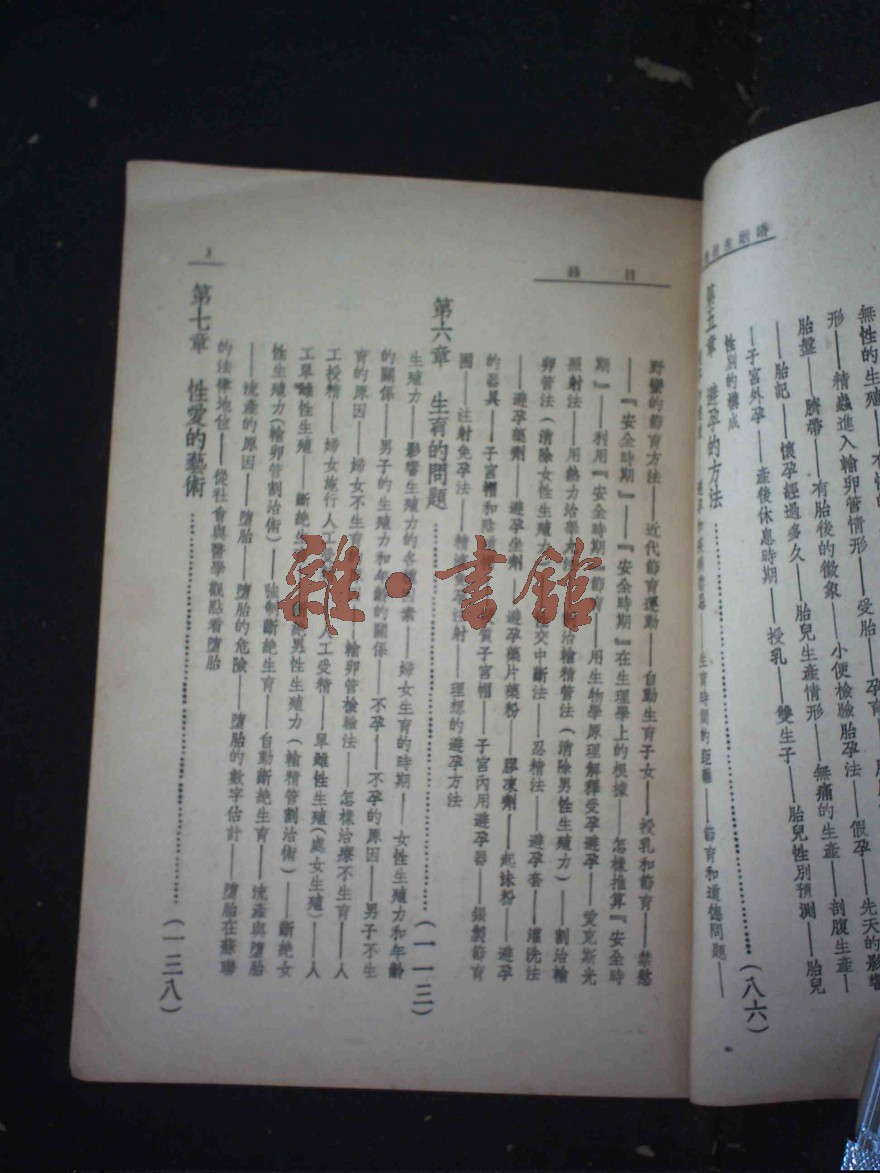 無性的生殖
形——精蟲進入輸卵管情形——受胎——孕育
胎盤——臍帶——有胎後的徵象——小便檢驗胎孕法——假孕——先天的影響
——胎記——懷孕經過多久——胎兒生產情形——無痛的生產——剖腹生產——
——子宮外孕——產後休息時期——授乳——雙生子——胎兒性別預測——胎兒
性別的構成
第五章 避孕的方法……(八六)
生育時間的距離——節育和道德問題——
目 錄
野蠻的節育方法——近代節育運動——自動生育子女——授乳和節育——禁慾
——『安全時期』——『安全時期』在生理學上的根據——怎樣推算『安全時
期』——利用『安全時期』節育——用生物學原理解釋受孕避孕——愛克斯光
照射法——用熱力治睾丸——割治輸精管法(消除男性生殖力)——割治輸
卵管法(消除女性生殖力)——交中斷法——忍精法——避孕套——灌洗法
——避孕藥劑——避孕坐劑——避孕藥片藥粉——膠凍劑——起沫粉——避孕
的器具——子宮帽和陰——子宮帽——子宮內用避孕器——銀製節育
圈——注射免孕法——精液注射——理想的避孕方法
第六章 生育的問題……(一一三)
生殖力——影響生殖力的各素——婦女生育的時期——女性生殖力和年齡
的關係——男子的生殖力和年齡的關係——不孕——不孕的原因——男子不生
育的原因——婦女不生育——輸卵管檢驗法——怎樣治療不生育——人
工授精——婦女施行人工受——人工受精——單雌性生殖(處女生殖)——人
工單雌性生殖——斷絕生——絕男性生殖力(輸精管割治術)——斷絕女
性生殖力(輸卵管割治術)——強制斷絕生育——自動斷絕生育——流產與墮胎
——流產的原因——墮胎——墮胎的危險——墮胎的數字估計——墮胎在蘇聯
的法律地位——從社會與醫學觀點看墮胎
第七章 性愛的藝術……(一三八)
3
雜·書館